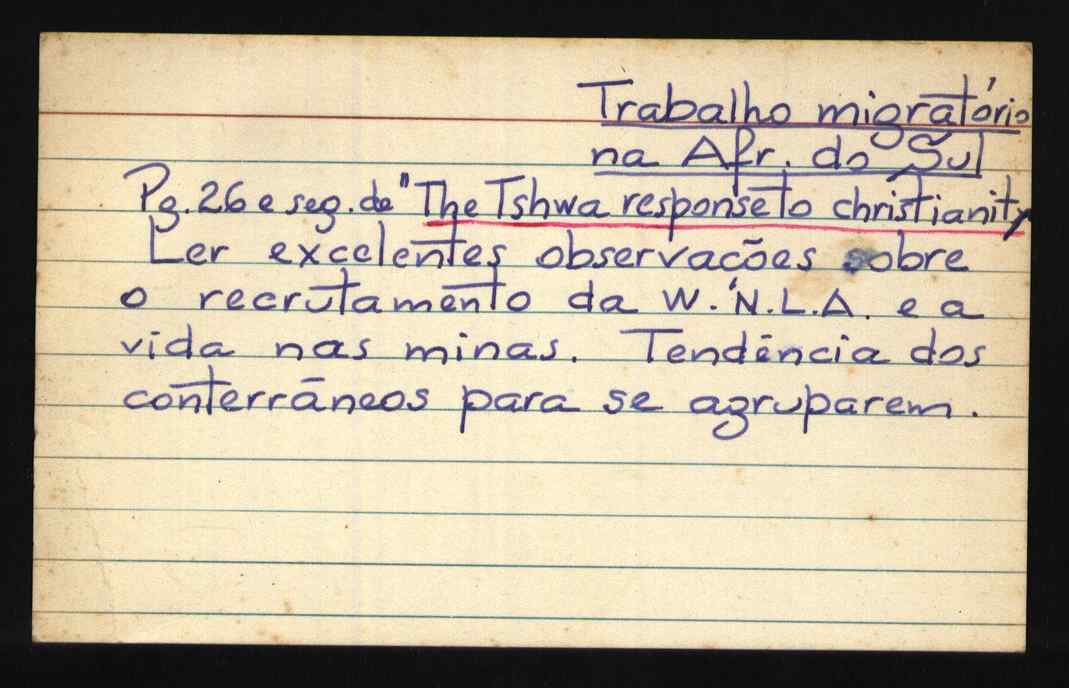 Trabalho migratório
na Afr. do Sul
Pg. 26 e seg. de "The Tshwa response to christianity
Ler excelentes observacões sobre
o recrutamento da W.N.L.A. e a
vida nas minas. Tendência dos
conterrâneos para se agruparem.